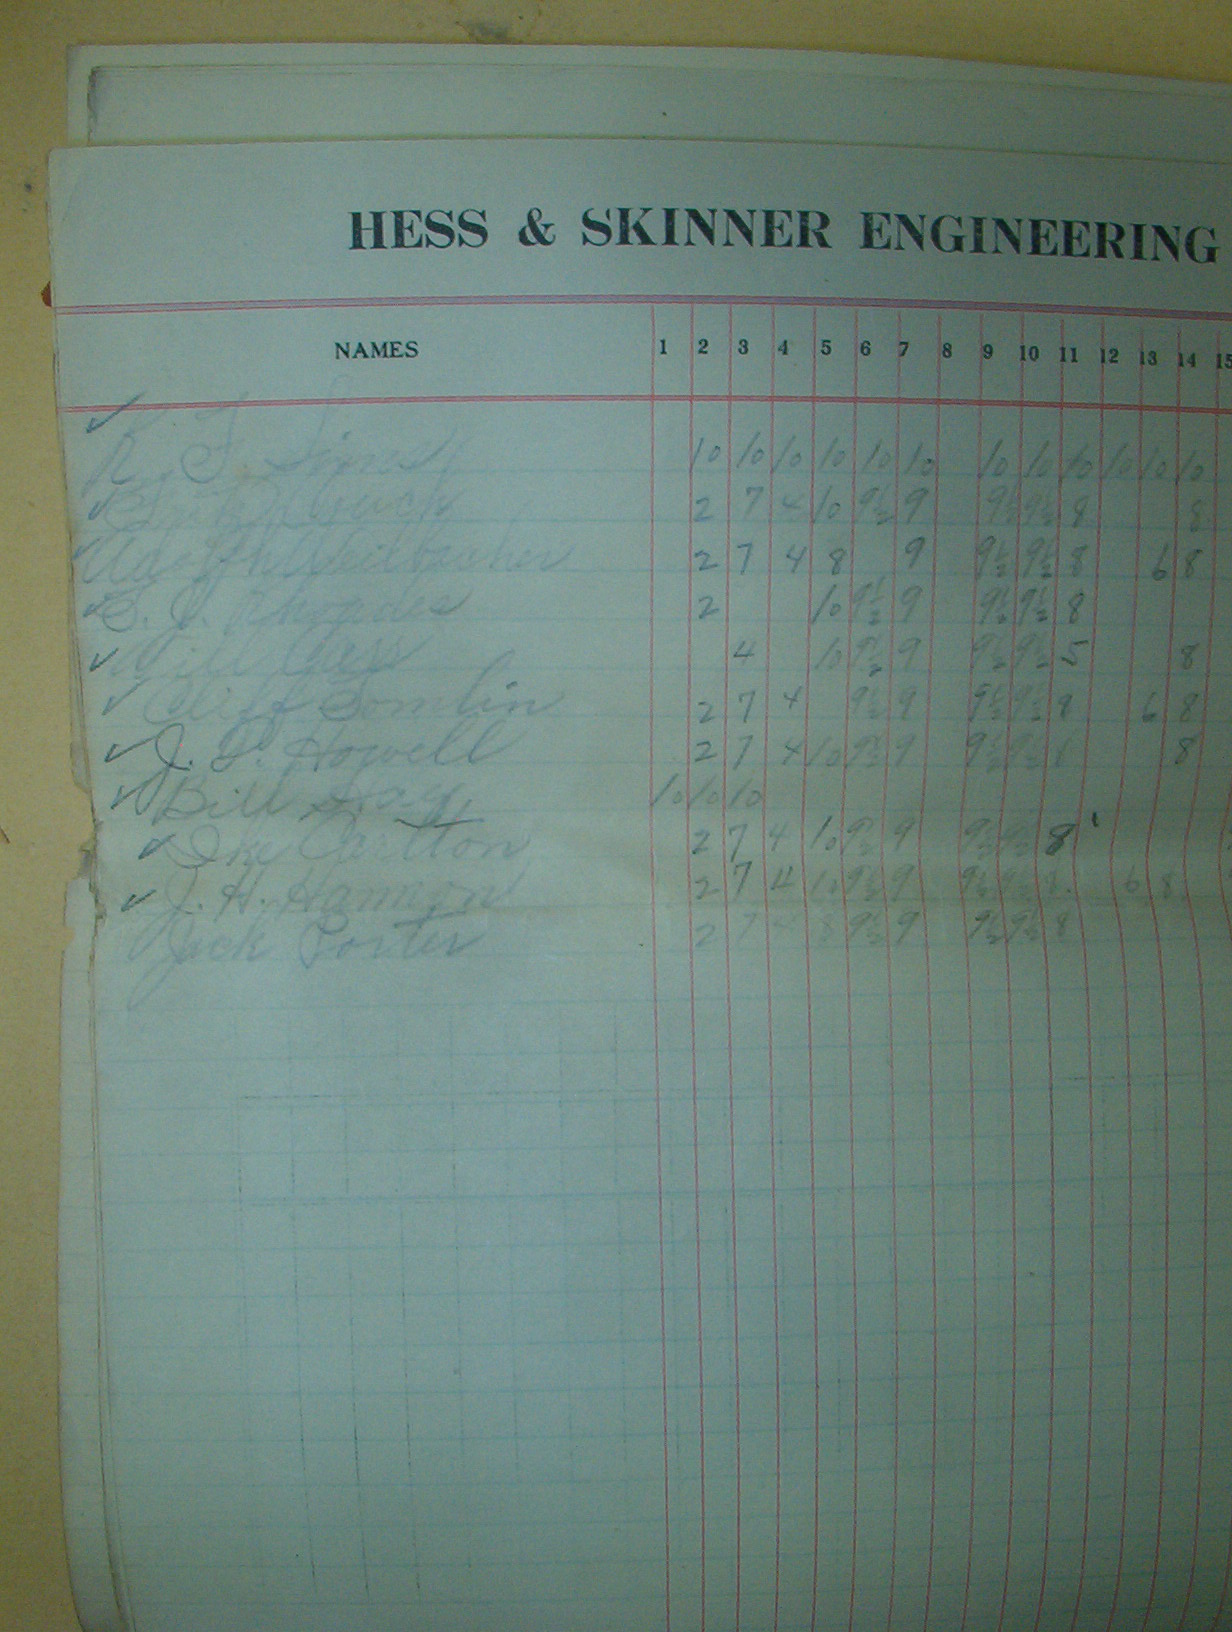 HESS & SKINNER ENGINEERING
NAMES 1 2 3 4 5 6 7 8 9 10 11 12 13 14 15
R. F. 10 10 10 10 10 10 10 10 10 10 10 10
2 7 4 10 9½ 9 9½ 9½ 8 8
Adolph 2 7 4 8 9 9½ 9½ 8 6 8
Rhoades 2 10 9½ 9 9½ 9½ 8
Will 4 10 9½ 9 9½ 9½ 5 8
Cliff Tomlin 2 7 4 9½ 9 9½ 9½ 8 6 8
J. S. Howell 2 7 4 10 9½ 9 9½ 9½ 8
Bill 10 10 10
Ike 2 7 4 10 9½ 9 9½ 9½ 8
J. H. Harmon 2 7 4 10 9½ 9 9½ 9½ 8 6 8
Jack Porter 2 7 4 8 9½ 9 9½ 9½ 8